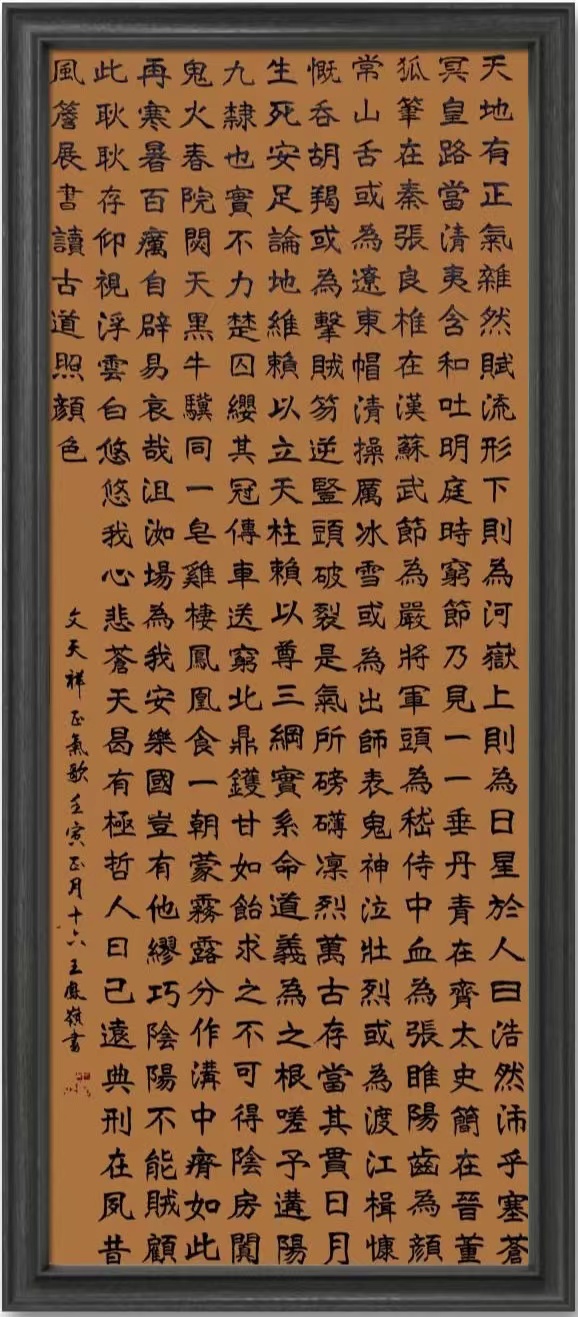 天地有正氣雜然賦流形下則為河嶽上則為日星於人曰浩然沛乎塞蒼
冥皇路當清夷含和吐明庭時窮節乃見一一垂丹青在齊太史簡在晉董
狐筆在秦張良椎在漢蘇武節為嚴將軍頭為嵇侍中血為張睢陽齒為顏
常山舌或為遼東帽清操厲冰雪或為出師表鬼神泣壯烈或為渡江楫慷
慨吞胡羯或為擊賊笏逆豎頭破裂是氣所磅礴凜烈萬古存當其貫日月
生死安足論地維賴以立天柱賴以尊三綱實系命道義為之根嗟予遘陽
九隸也實不力楚囚纓其冠傳車送窮北鼎鑊甘如飴求之不可得陰房闃
鬼火春院閟天黑牛驥同一皂雞棲鳳凰食一朝蒙霧露分作溝中瘠如此
再寒暑百癘自辟易哀哉沮洳場為我安樂國豈有他繆巧陰陽不能賊顧
此耿耿存仰視浮雲白悠悠我心悲蒼天曷有極哲人日已遠典刑在夙昔
風簷展書讀古道照顏色
文天祥正氣歌壬寅正月十六王嶺書